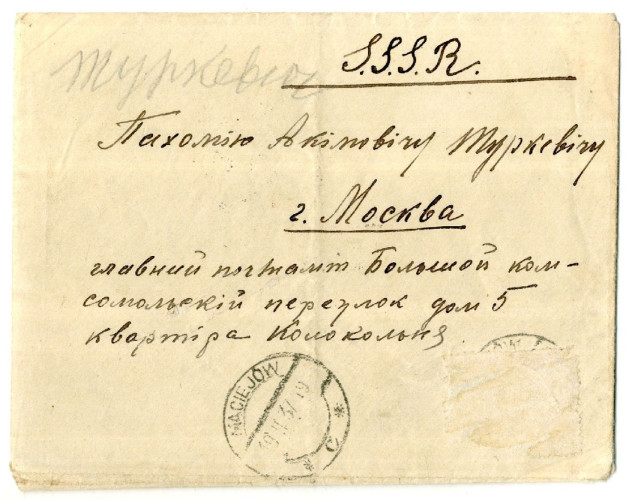 Туркевич
S.S.S.R.
Пахомію Акімовічу Туркевічу
г. Москва
главний почтамт Большой ком-
сомольскій переулок дом 5
квартіра Колокольня
MACIEJÓW
C